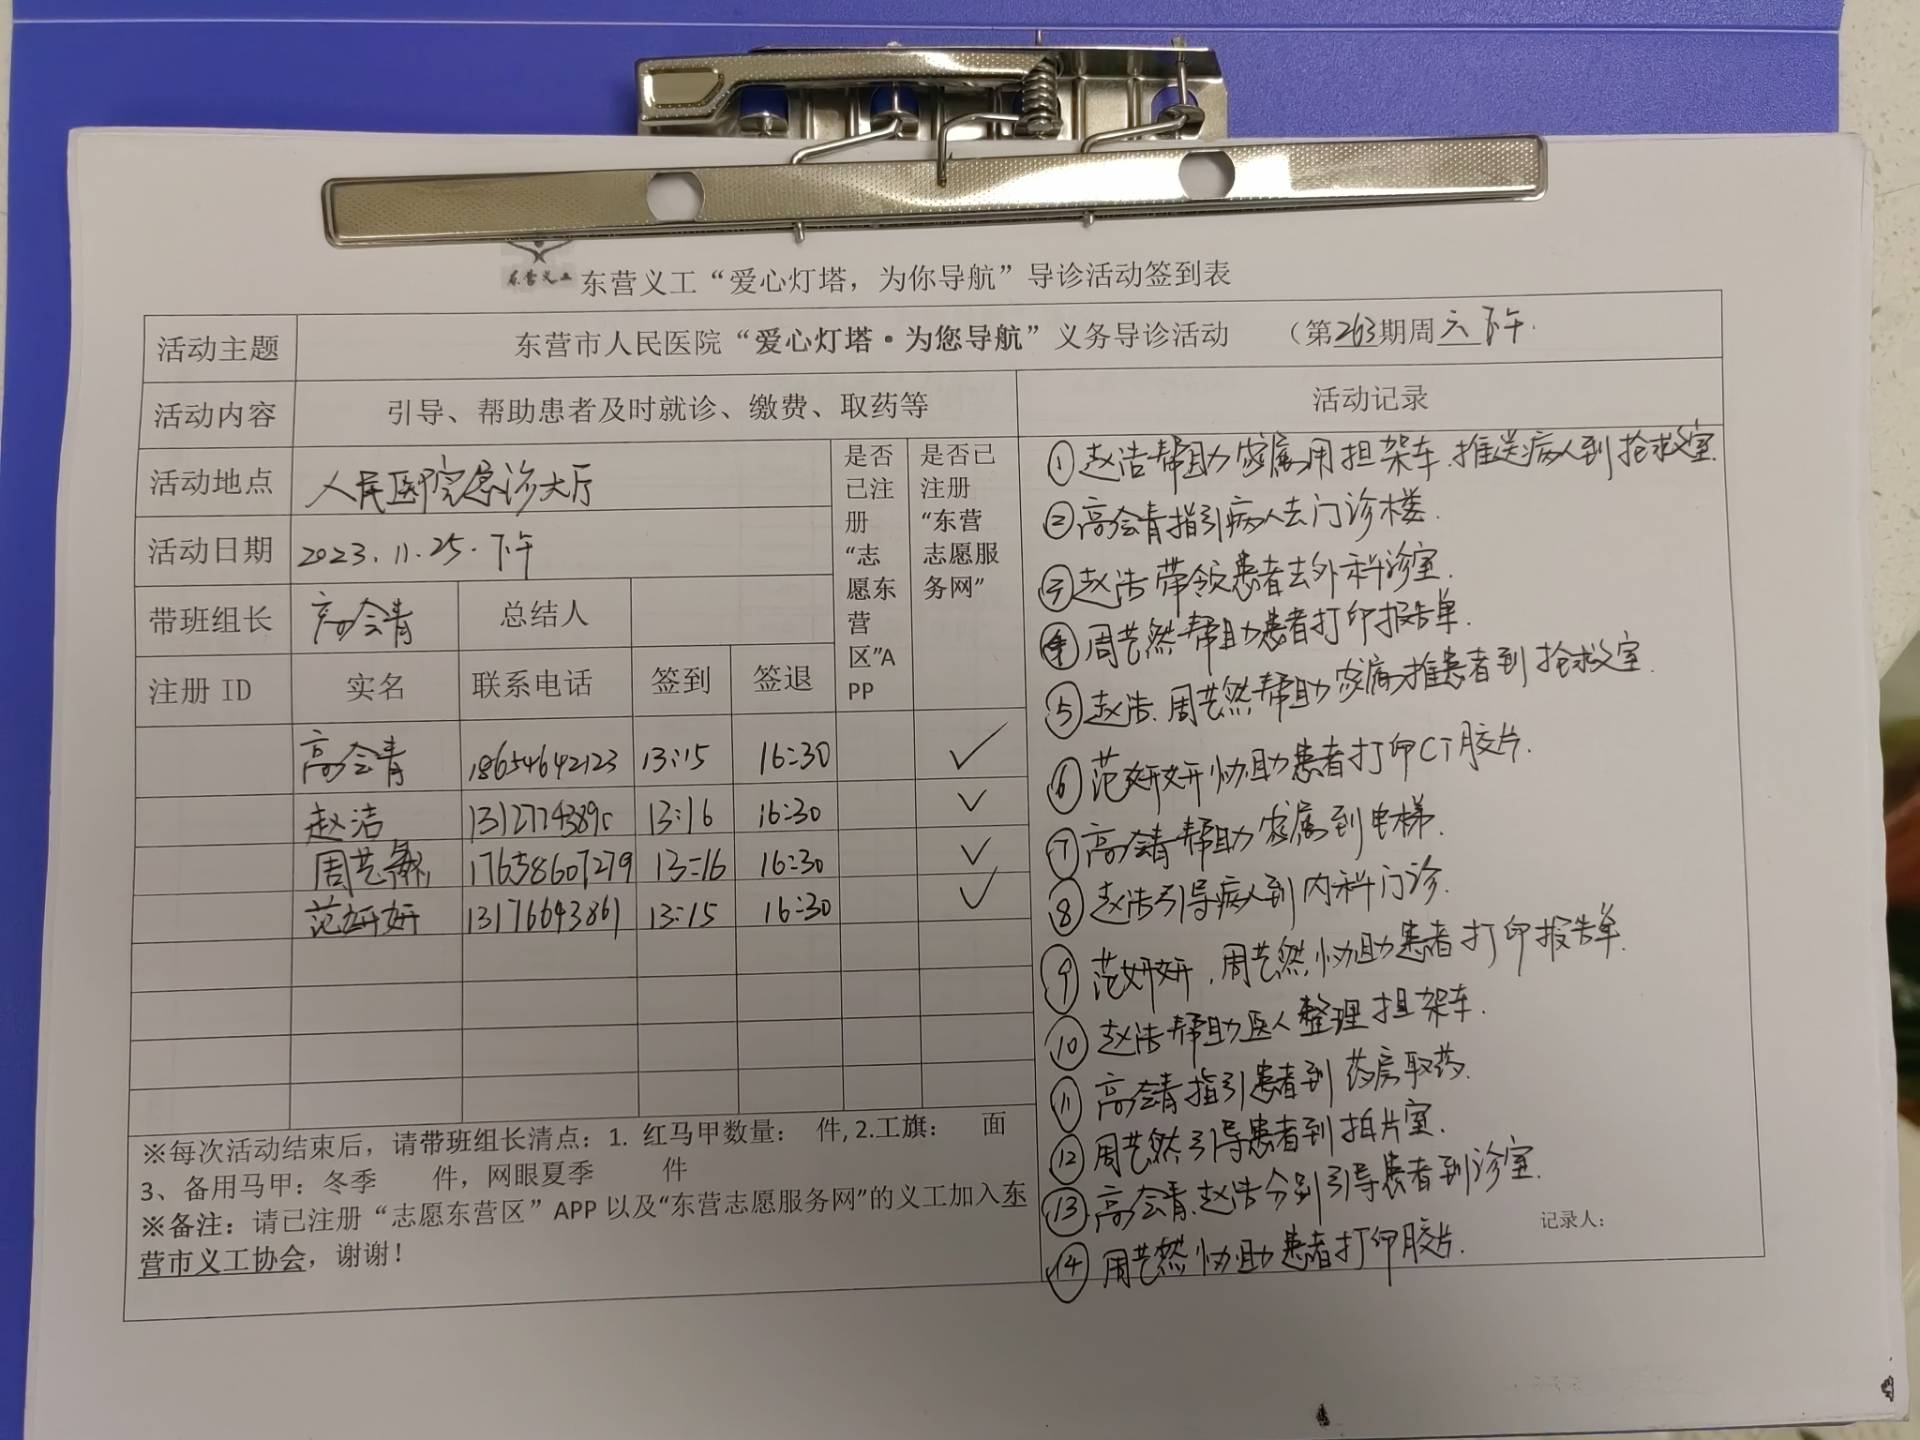 东营义工
东营义工“爱心灯塔，为你导航”导诊活动签到表
活动主题 东营市人民医院“爱心灯塔·为您导航”义务导诊活动 （第263期周六下午.
活动内容 引导、帮助患者及时就诊、缴费、取药等 活动记录
活动地点 人民医院急诊大厅
活动日期 2023.11.25.下午
带班组长 高会青 总结人
注册 ID 实名 联系电话 签到 签退
是否
已注
册
“志
愿东
营
区”A
PP
是否已
注册
“东营
志愿服
务网”
高会青 18654642123 13:15 16:30 ✓
赵洁 13:16 16:30 ✓
周艺 17658607279 13:16 16:30 ✓
范妍妍 13176643861 13:15 16:30 ✓
※每次活动结束后，请带班组长清点：1. 红马甲数量： 件, 2.工旗： 面
3、备用马甲：冬季 件，网眼夏季 件
※备注：请已注册“志愿东营区”APP 以及“东营志愿服务网”的义工加入东
营市义工协会，谢谢！
①赵洁帮助家属用担架车推送病人到抢救室.
②高会青指引病人去门诊楼.
③赵洁带领患者去外科诊室.
④周艺然帮助患者打印报告单.
⑤赵洁、周艺然帮助家属推患者到抢救室.
⑥范妍妍协助患者打印CT胶片.
⑦高会青帮助家属到电梯.
⑧赵洁引导病人到内科门诊.
⑨范妍妍、周艺然协助患者打印报告单.
⑩赵洁帮助医人整理担架车.
⑪高会青指引患者到药房取药.
⑫周艺然引导患者到拍片室.
⑬高会青.赵洁分别引导患者到诊室.
⑭周艺然协助患者打印胶片.
记录人：